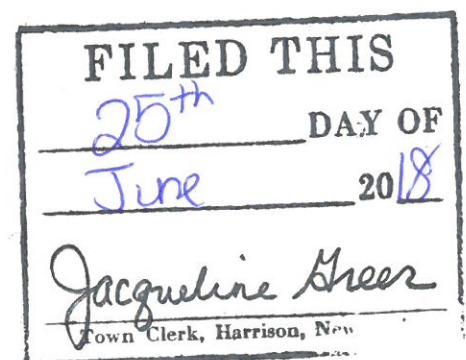 FILED THIS
25th DAY OF
June 2018
Jacqueline Greer
Town Clerk, Harrison, New